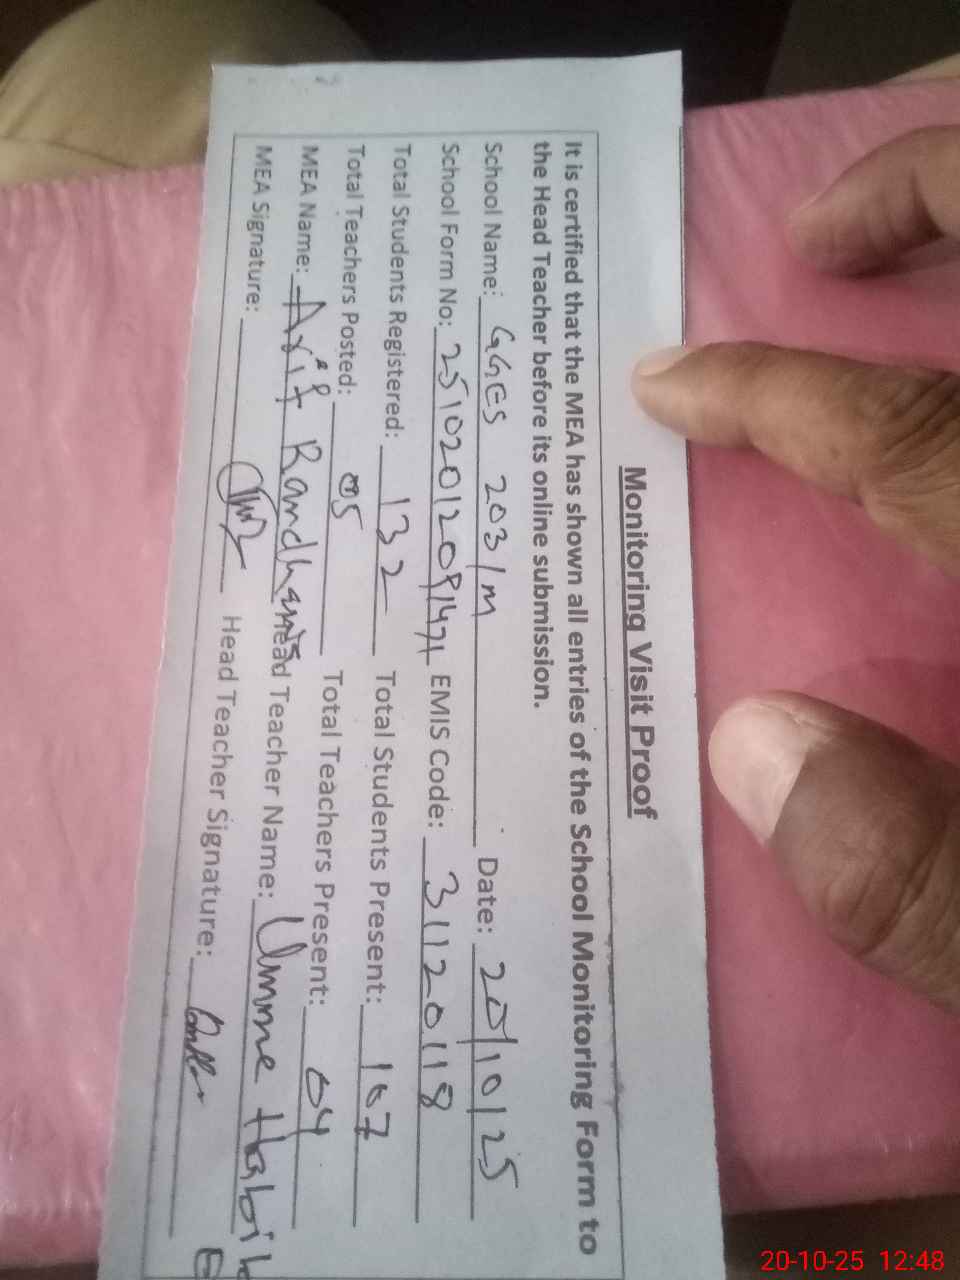 Monitoring Visit Proof
It is certified that the MEA has shown all entries of the School Monitoring Form to
the Head Teacher before its online submission.
School Name: GGES 203/M Date: 20/10/25
School Form No: 25102012091471 EMIS Code: 31120118
Total Students Registered: 132 Total Students Present: 107
Total Teachers Posted: 05 Total Teachers Present: 04
MEA Name: Arif Randhawa Head Teacher Name: Umme Habib
MEA Signature: Head Teacher Signature:
20-10-25 12:48